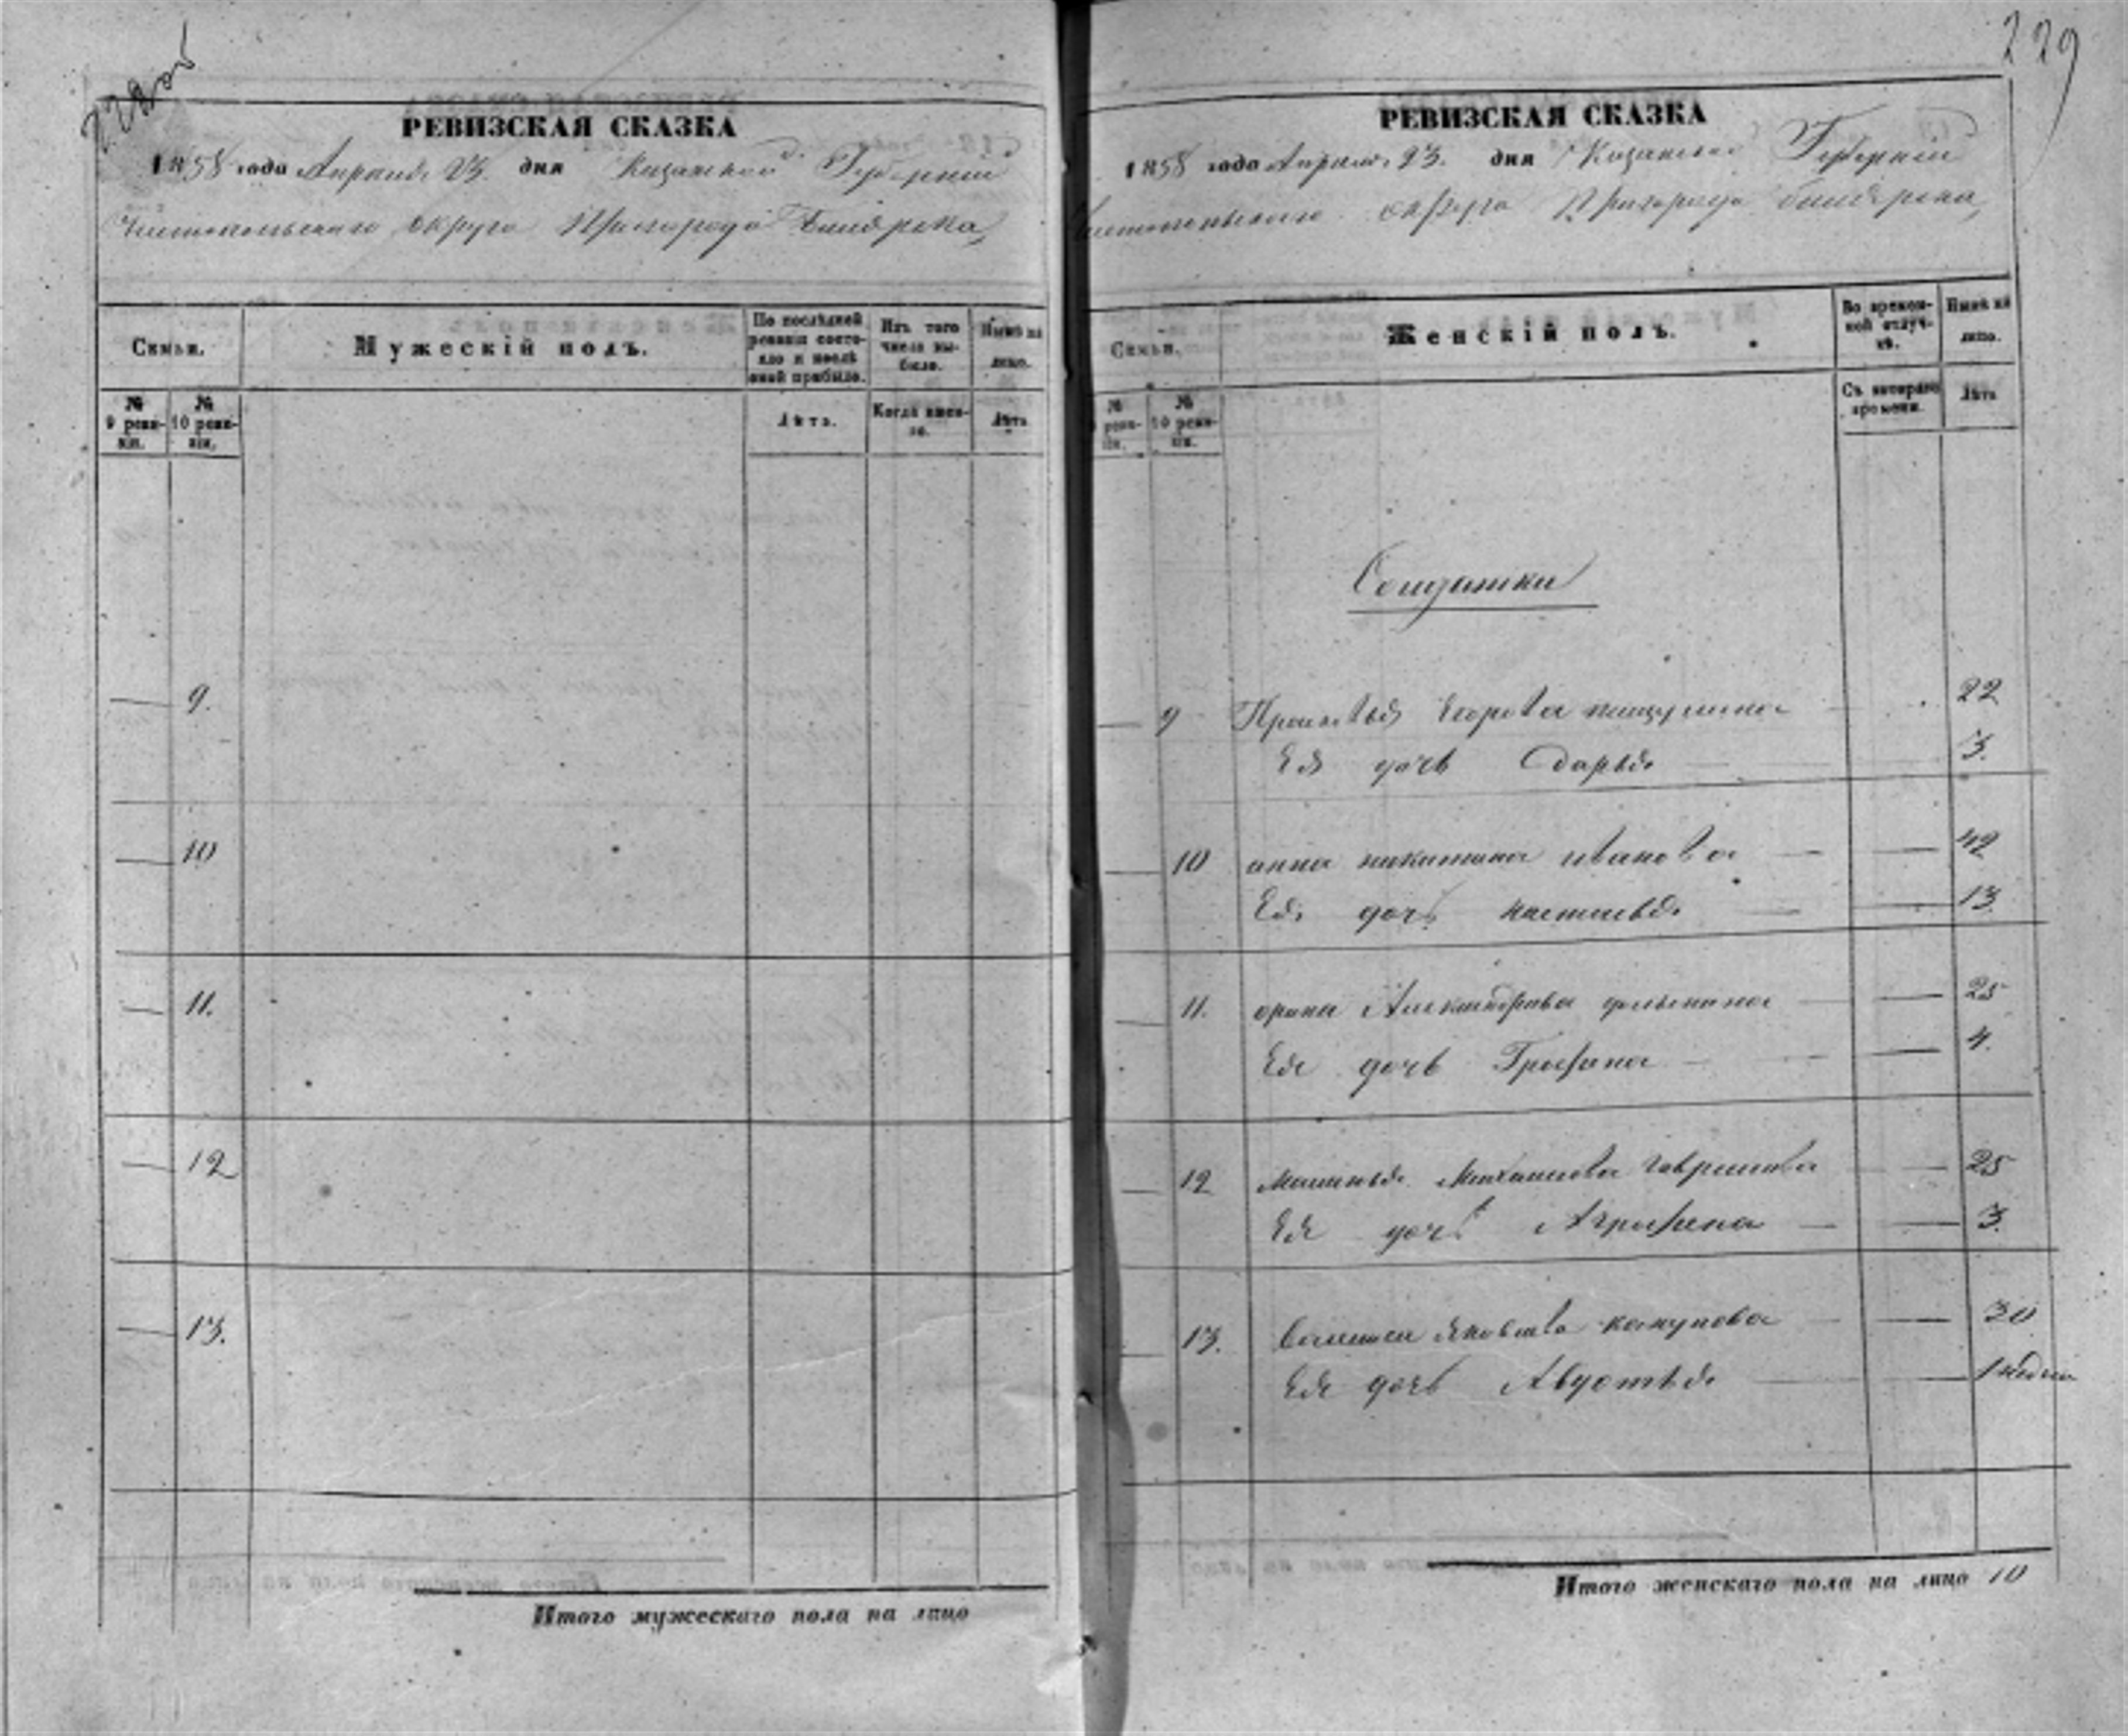 228 об
РЕВИЗСКАЯ СКАЗКА
1858 года Апреля 23 дня Казанской Губерніи
Чистопольского округа Пригорода Билярска,
Семьи.
Мужескій полъ.
По послѣдней ревизіи состояло и послѣ оной прибыло.
Изъ того числа выбыло.
Нынѣ на лицо.
№ 9 ревизіи.
№ 10 ревизіи.
Лѣтъ.
Когда именно.
Лѣтъ
— 9.
— 10
— 11.
— 12
— 13.
Итого мужескаго пола на лицо
229
РЕВИЗСКАЯ СКАЗКА
1858 года Апреля 23. дня Казанской Губерніи
Чистопольского округа Пригорода билярска,
Семьи.
Женскій полъ.
Во временной отлучкѣ.
Нынѣ на лицо.
№ 9 ревизіи.
№ 10 ревизіи.
Съ котораго времени.
Лѣтъ
Солдатки
— 9 Егорова 22
Ея дочь Дарья 3.
— 10 анна никитина иванова — — 42
Ея дочь настасья — — 13
— 11. орина Александрова — — 25
Ея дочь — — 4.
— 12 Маланья Михаилова гаврилова — — 25
Ея дочь Аграфена — — 3.
— 13. Яковлева — — 30
Ея дочь Авдотья — — 1 недели
Итого женскаго пола на лицо 10